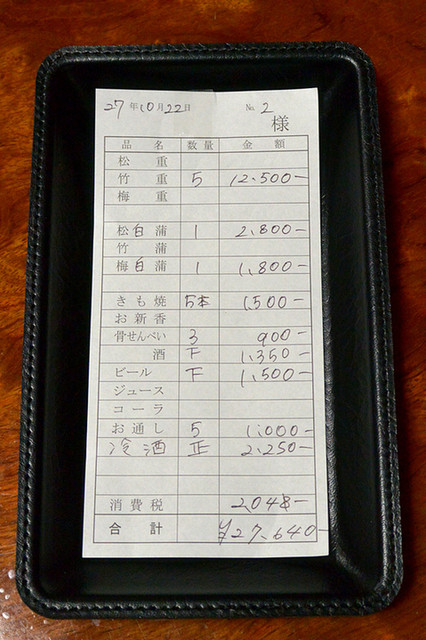 27年10月22日 No. 2
様
品名 数量 金額
松重
竹重 5 12,500-
梅重
松白蒲 1 2,800-
竹蒲
梅白蒲 1 1,800-
きも焼 5本 1,500-
お新香
骨せんべい 3 900-
酒 下 1,350-
ビール 下 1,500-
ジュース
コーラ
お通し 5 1,000-
冷酒 正 2,250-
消費税 2,048-
合計 ¥27,640-